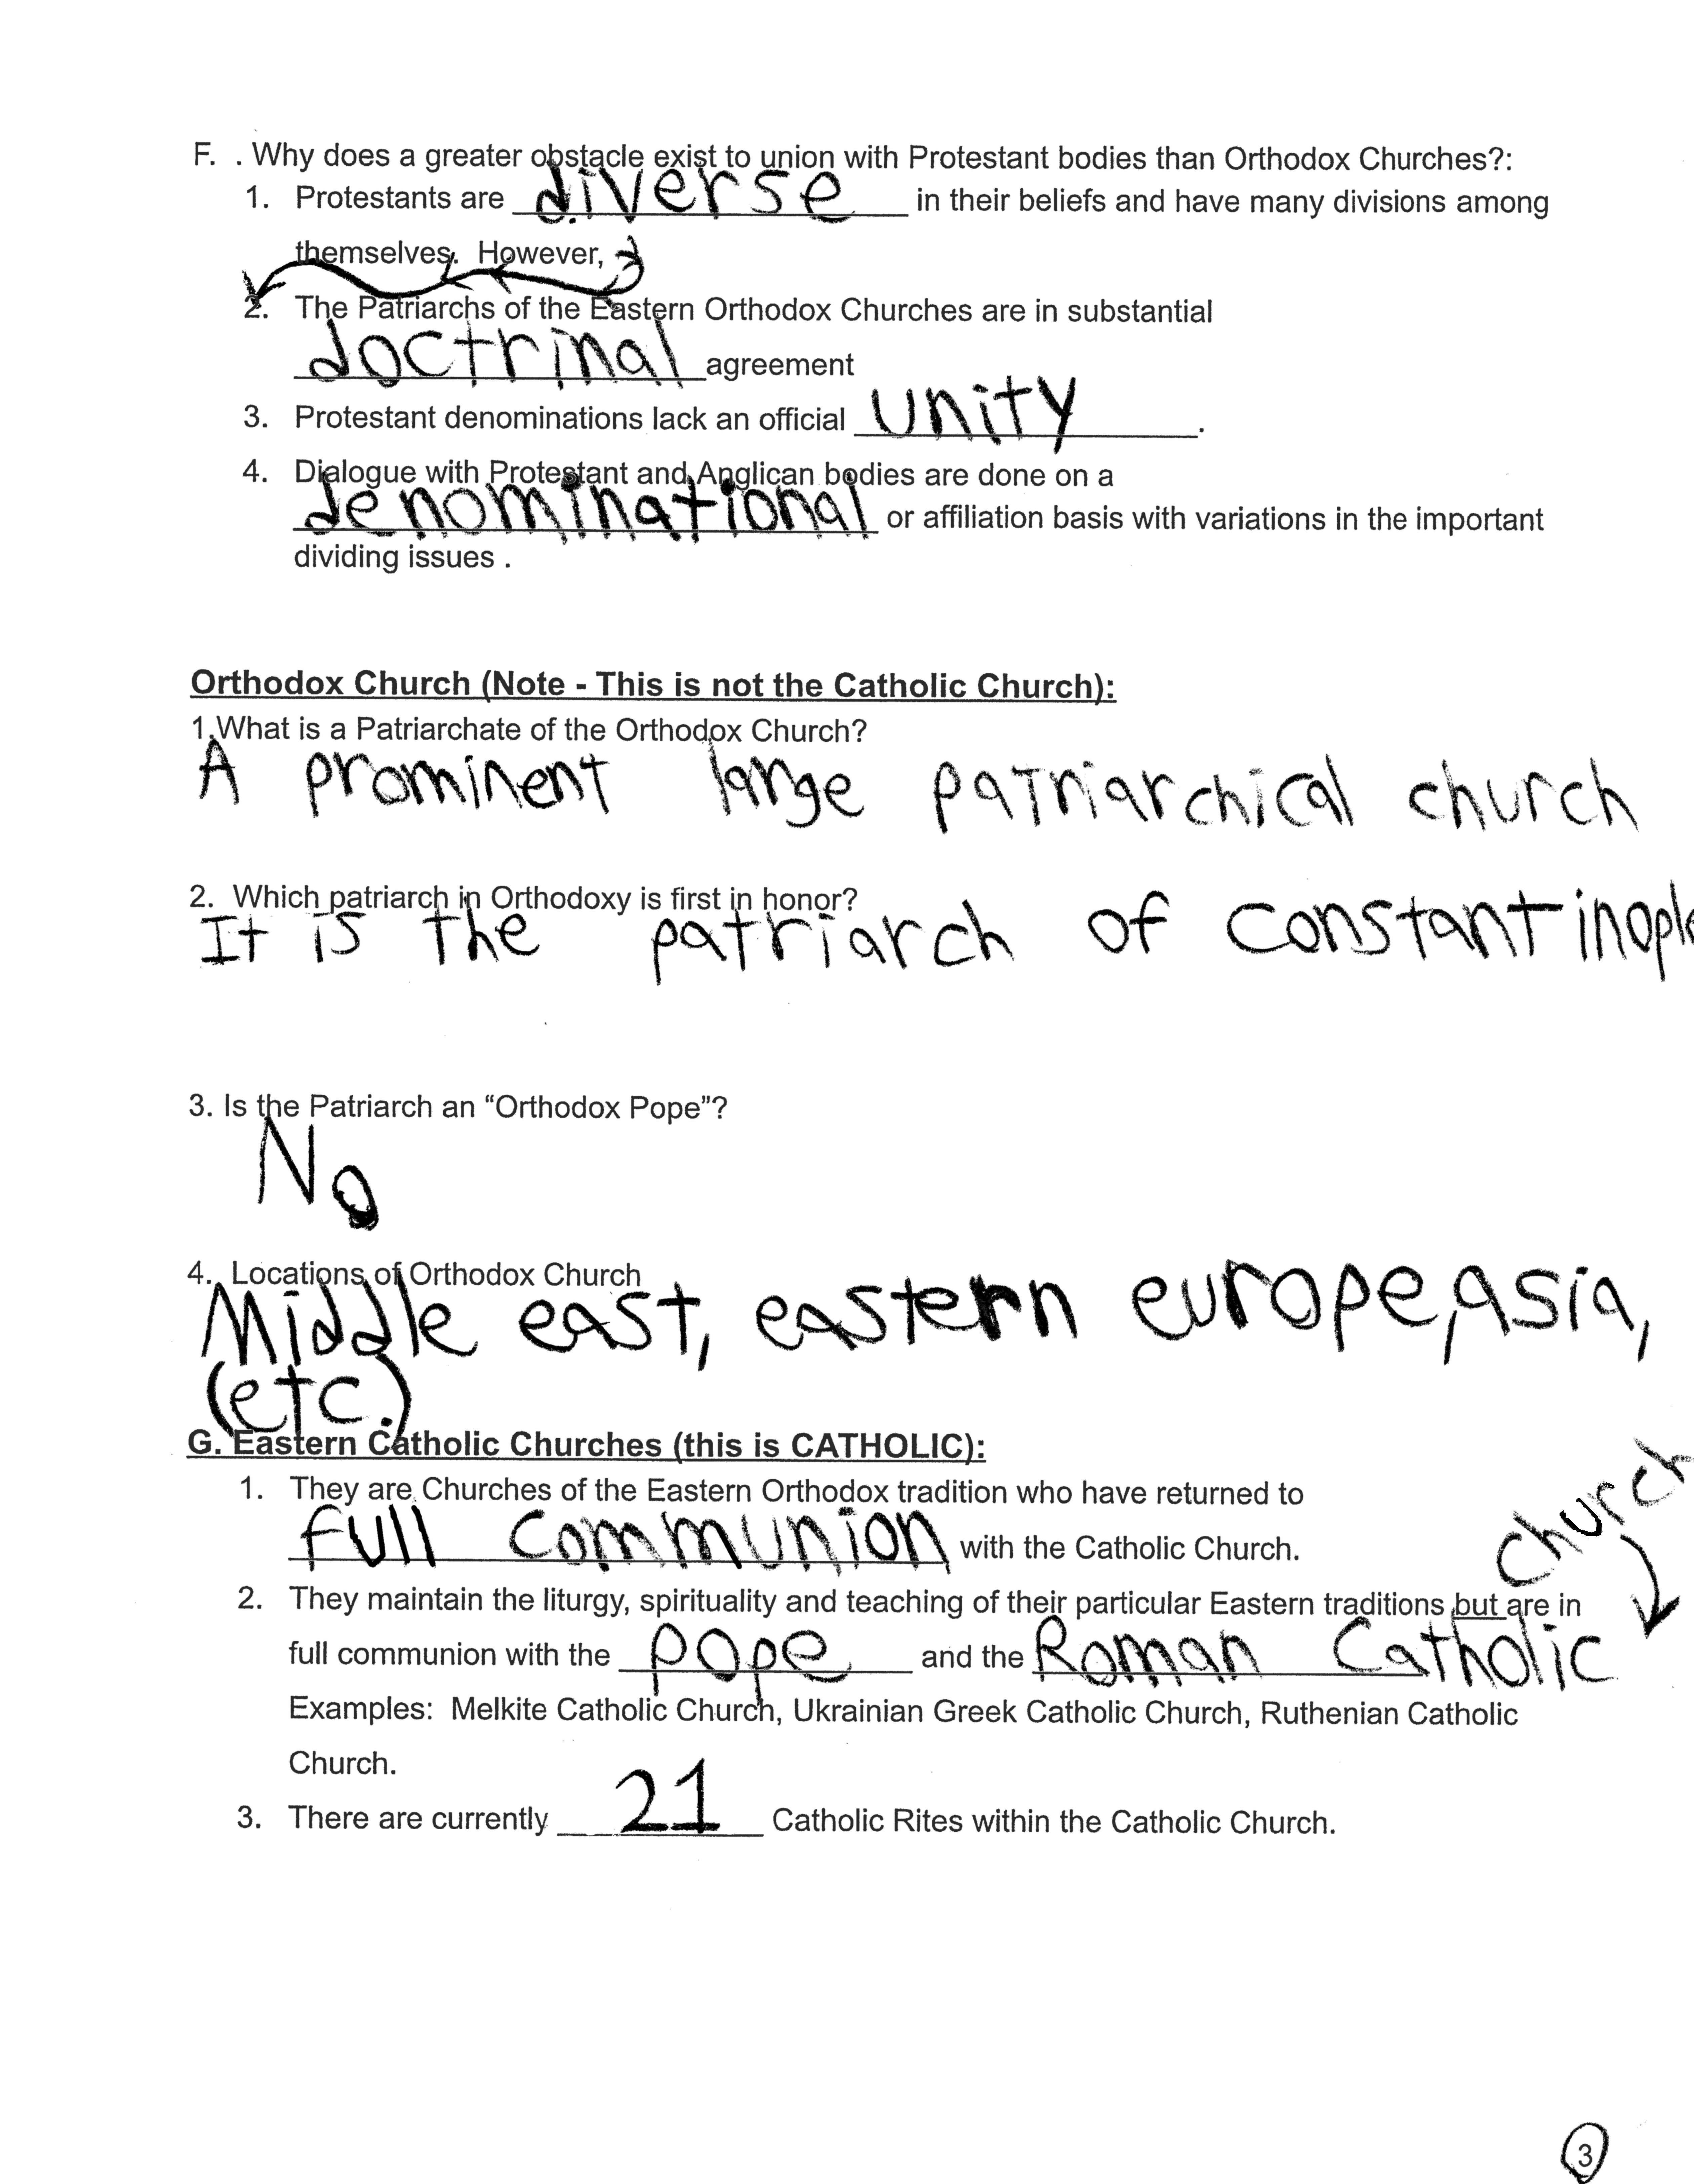 F. . Why does a greater obstacle exist to union with Protestant bodies than Orthodox Churches?:
1. Protestants are diverse in their beliefs and have many divisions among
themselves. However,
2. The Patriarchs of the Eastern Orthodox Churches are in substantial
doctrinal agreement
3. Protestant denominations lack an official unity.
4. Dialogue with Protestant and Anglican bodies are done on a
denominational or affiliation basis with variations in the important
dividing issues .
Orthodox Church (Note - This is not the Catholic Church):
1.What is a Patriarchate of the Orthodox Church?
A prominent large patriarchical church
2. Which patriarch in Orthodoxy is first in honor?
It is the patriarch of constantinople
3. Is the Patriarch an “Orthodox Pope”?
No
4. Locations of Orthodox Church
Middle east, eastern europe, asia,
(etc.)
G. Eastern Catholic Churches (this is CATHOLIC):
1. They are Churches of the Eastern Orthodox tradition who have returned to
full communion with the Catholic Church.
church
2. They maintain the liturgy, spirituality and teaching of their particular Eastern traditions but are in
full communion with the pope and the Roman Catholic
Examples: Melkite Catholic Church, Ukrainian Greek Catholic Church, Ruthenian Catholic
Church.
3. There are currently 21 Catholic Rites within the Catholic Church.
3